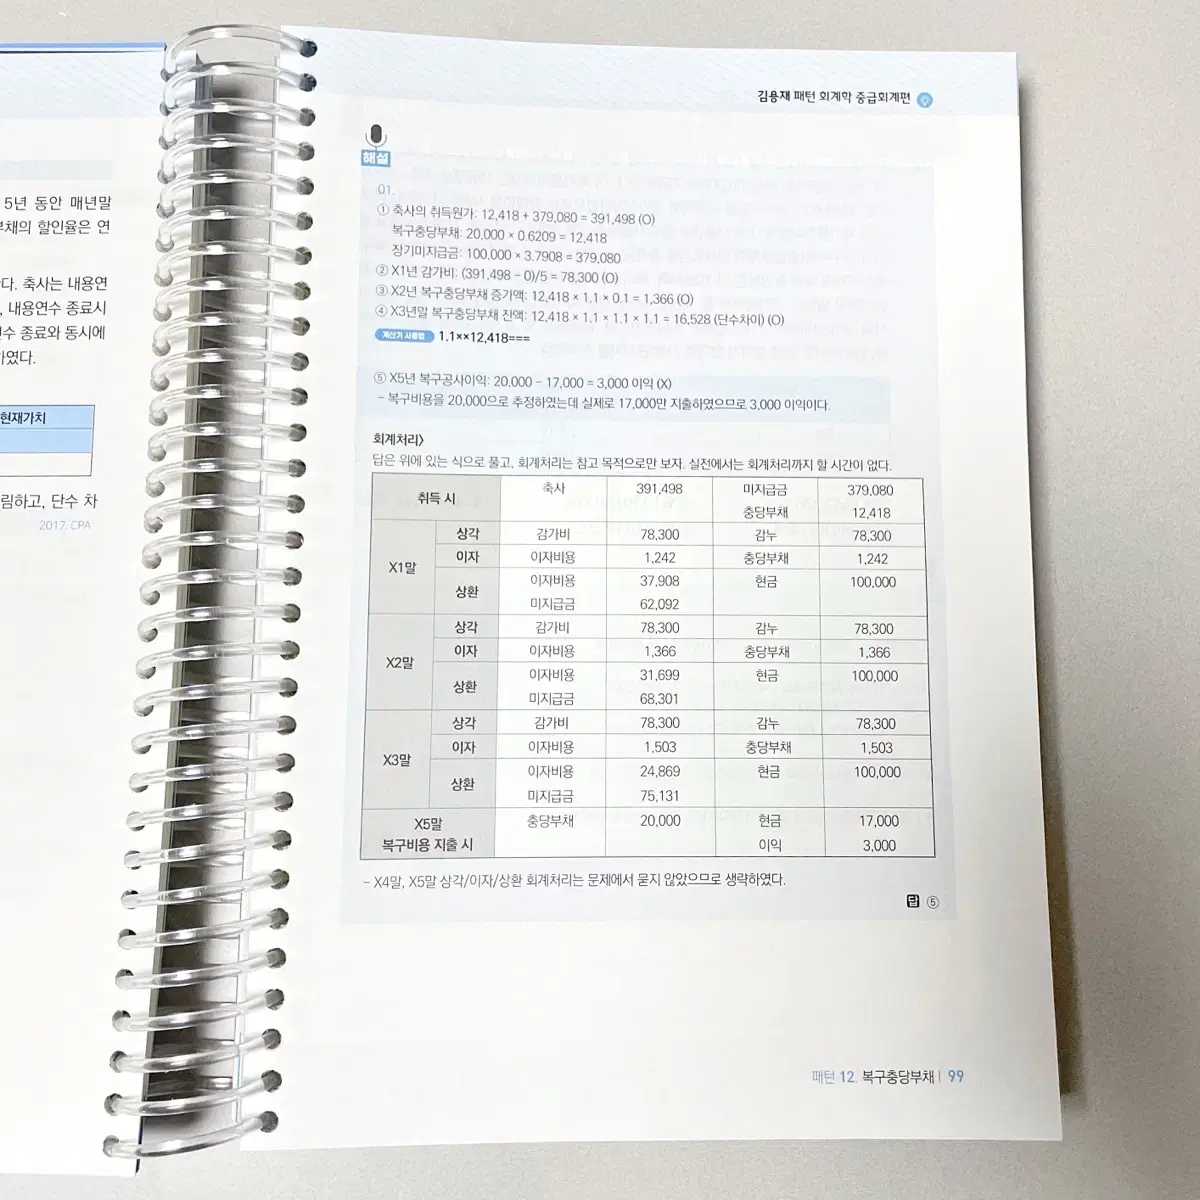 5년 동안 매년말
부채의 할인율은 연
다. 축사는 내용연
, 내용연수 종료시
연수 종료와 동시에
하였다.
현재가치
림하고, 단수 차
2017. CPA
김용재 패턴 회계학 중급회계편
해설
01.
① 축사의 취득원가: 12,418 + 379,080 = 391,498 (O)
복구충당부채: 20,000 × 0.6209 = 12,418
장기미지급금: 100,000 × 3.7908 = 379,080
② X1년 감가비: (391,498 – 0)/5 = 78,300 (O)
③ X2년 복구충당부채 증가액: 12,418 × 1.1 × 0.1 = 1,366 (O)
④ X3년말 복구충당부채 잔액: 12,418 × 1.1 × 1.1 × 1.1 = 16,528 (단수차이) (O)
계산기 사용법 1.1××12,418===
⑤ X5년 복구공사이익: 20,000 – 17,000 = 3,000 이익 (X)
– 복구비용을 20,000으로 추정하였는데 실제로 17,000만 지출하였으므로 3,000 이익이다.
회계처리〉
답은 위에 있는 식으로 풀고, 회계처리는 참고 목적으로만 보자. 실전에서는 회계처리까지 할 시간이 없다.
취득 시 축사 391,498 미지급금 379,080
충당부채 12,418
X1말 상각 감가비 78,300 감누 78,300
이자 이자비용 1,242 충당부채 1,242
상환 이자비용 37,908 현금 100,000
미지급금 62,092
X2말 상각 감가비 78,300 감누 78,300
이자 이자비용 1,366 충당부채 1,366
상환 이자비용 31,699 현금 100,000
미지급금 68,301
X3말 상각 감가비 78,300 감누 78,300
이자 이자비용 1,503 충당부채 1,503
상환 이자비용 24,869 현금 100,000
미지급금 75,131
X5말 충당부채 20,000 현금 17,000
복구비용 지출 시 이익 3,000
– X4말, X5말 상각/이자/상환 회계처리는 문제에서 묻지 않았으므로 생략하였다.
답 ⑤
패턴 12. 복구충당부채 | 99